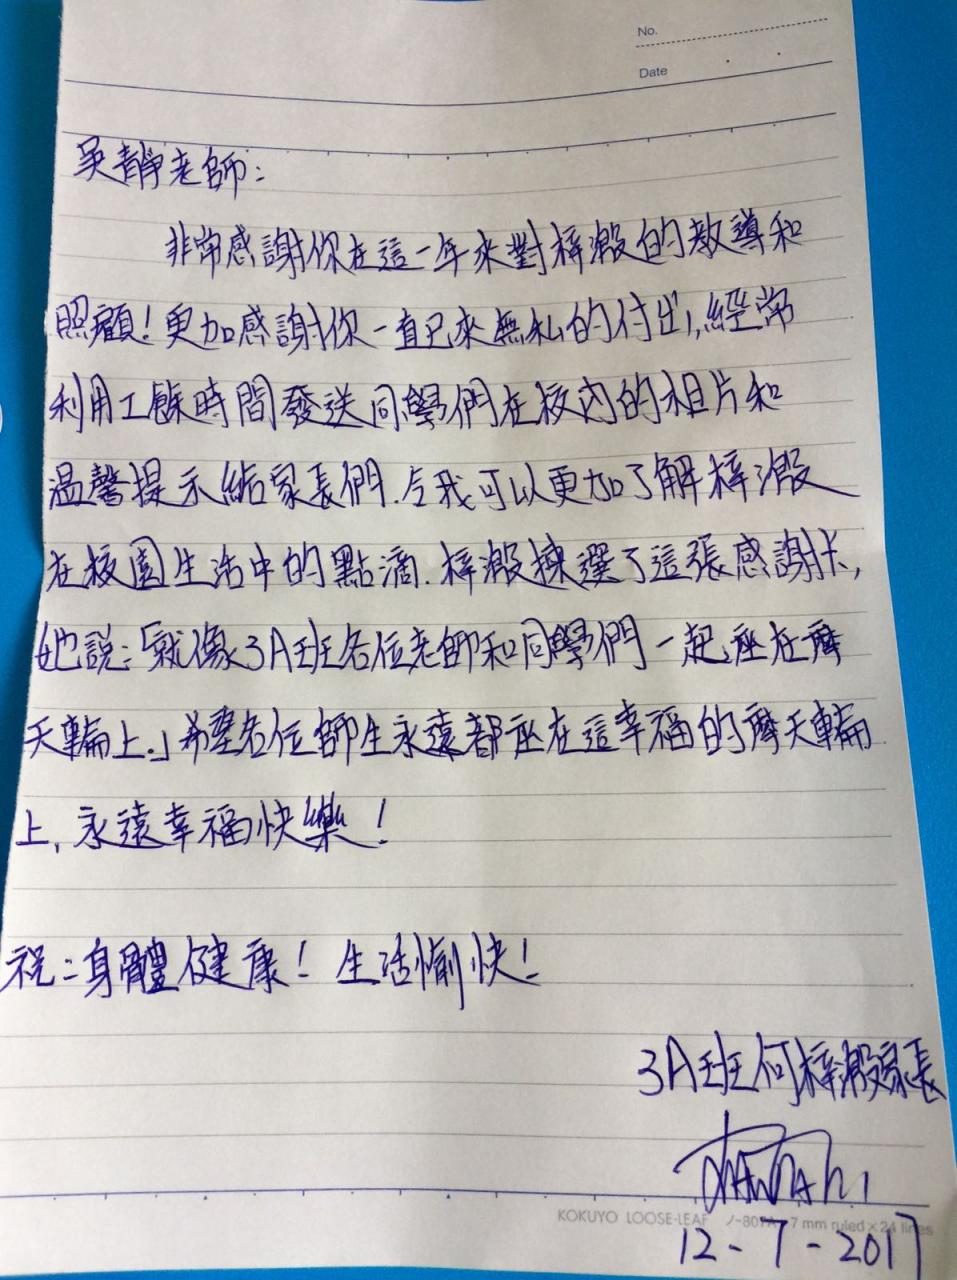 No.
Date
吳靜老師：
非常感謝你在這一年來對梓澂的教導和
照顧！更加感謝你一直已來無私的付出，經常
利用工餘時間發送同學們在校內的相片和
溫馨提示給家長們，令我可以更加了解梓澂
在校園生活中的點滴．梓澂揀選了這張感謝卡，
她說：「就像3A班各位老師和同學們一起座在摩
天輪上。」希望各位師生永遠都座在這幸福的摩天輪
上，永遠幸福快樂！
祝：身體健康！生活愉快！
3A班何梓澂家長
KOKUYO LOOSE-LEAF ノ-807A 7 mm ruled×24 lines
12-7-2017